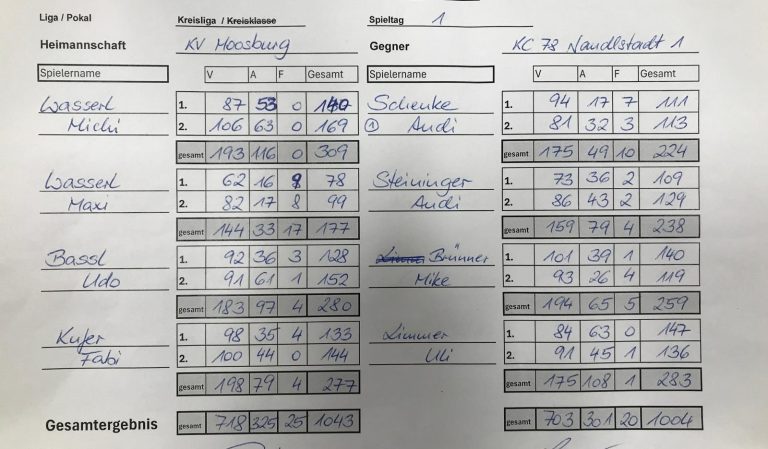 Liga / Pokal Kreisliga / Kreisklasse Spieltag 1
Heimannschaft KV Moosburg Gegner KC 78 Nandlstadt 1
Spielername V A F Gesamt Spielername V A F Gesamt
Wasserl 1. 87 53 0 140 Schenke 1. 94 17 7 111
Michi 2. 106 63 0 169 1 Andi 2. 81 32 3 113
gesamt 193 116 0 309 gesamt 175 49 10 224
Wasserl 1. 62 16 9 78 Steininger 1. 73 36 2 109
Maxi 2. 82 17 8 99 Andi 2. 86 43 2 129
gesamt 144 33 17 177 gesamt 159 79 4 238
Bassl 1. 92 36 3 128 Brünner 1. 101 39 1 140
Udo 2. 91 61 1 152 Mike 2. 93 26 4 119
gesamt 183 97 4 280 gesamt 194 65 5 259
Kufer 1. 98 35 4 133 Limmer 1. 84 63 0 147
Fabi 2. 100 44 0 144 Uli 2. 91 45 1 136
gesamt 198 79 4 277 gesamt 175 108 1 283
Gesamtergebnis gesamt 718 325 25 1043 gesamt 703 301 20 1004